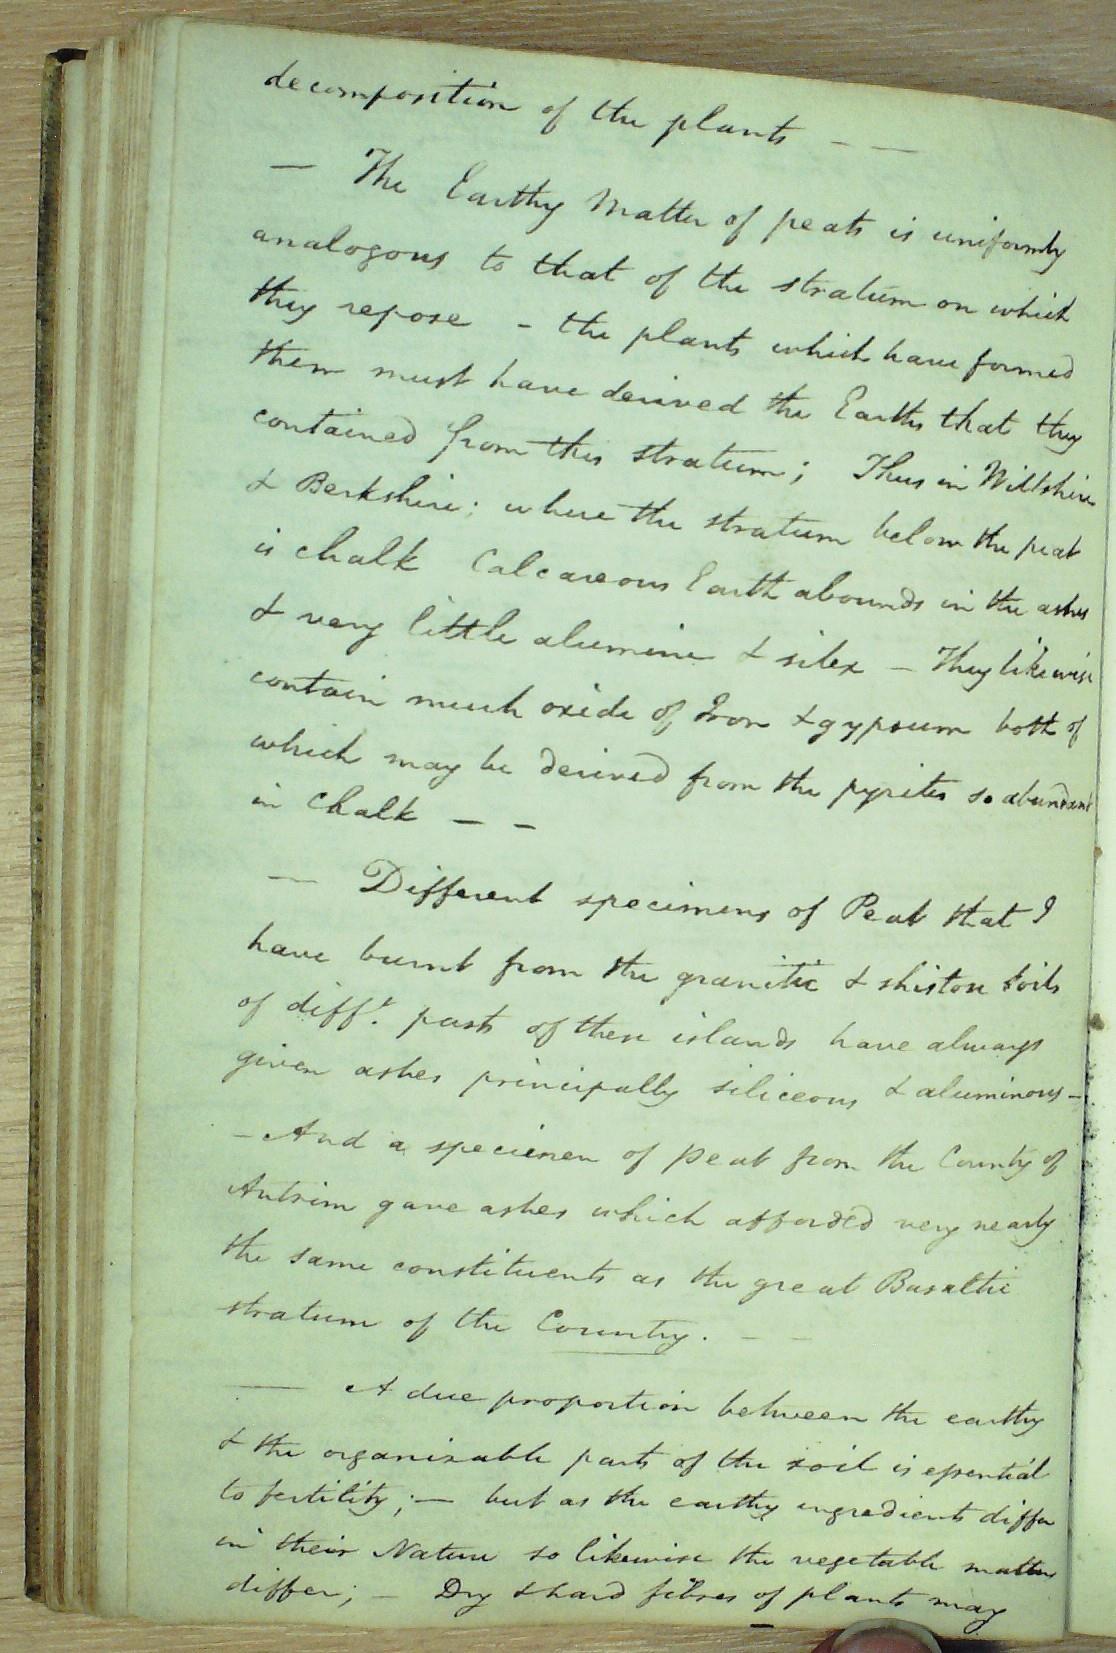 decomposition of the plants — —
— The Earthy Matter of peats is uniformly
analogous to that of the stratum on which
they repose - the plants which have formed
them must have derived the Earths that they
contained from this stratum; Thus in Wiltshire
& Berkshire; where the stratum below the peat
is chalk Calcareous Earth abounds in the ashes
& very little alumine & silex — They likewise
contain much oxide of Iron & gypsum both of
which may be derived from the pyrites so abundant
in Chalk — —
— Different specimens of Peat that I
have burnt from the granitic & shistose soils
of difft. parts of these islands have always
given ashes principally siliceous & aluminous —
— And a specimen of peat from the County of
Antrim gave ashes which afforded very nearly
the same constituents as the great Basaltic
stratum of the Country. — —
— A due proportion between the earthy
& the organisable parts of the soil is essential
to fertility; — but as the earthy ingredients differ
in their Nature so likewise the vegetable matters
differ; — Dry & hard fibres of plants may